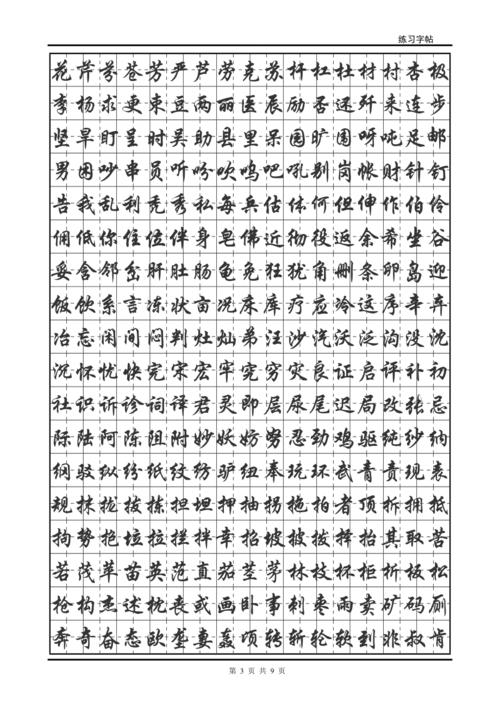 练习字帖
花芹芬苍芳严芦劳克苏杆杠杜材村杏极
李杨求更束豆两丽医辰励否还歼来连步
坚旱盯呈时吴助县里呆园旷围呀吨足邮
男困吵串员听吩吹呜吧吼别岗帐财针钉
告我乱利秃秀私每兵估体何但伸作伯伶
佣低你住位伴身皂佛近彻役返余希坐谷
妥含邻岔肝肚肠龟免狂犹角删条卵岛迎
饭饮系言冻状亩况床库疗应冷这序辛弃
冶忘闲间闷判灶灿弟汪沙汽沃泛沟没沈
沉怀忧快完宋宏牢究穷灾良证启评补初
社识诉诊词译君灵即层尿尾迟局改张忌
际陆阿陈阻附妙妖妨努忍劲鸡驱纯纱纳
纲驳纵纷纸纹纺驴纽奉玩环武青责现表
规抹拢拔拣担坦押抽拐拖拍者顶拆拥抵
拘势抱垃拉拦拌幸招坡披拨择抬其取苦
若茂苹苗英范直茄茎茅林枝杯柜析板松
枪构杰述枕丧或画卧事刺枣雨卖矿码厕
奔奇奋态欧垄妻轰项转斩轮软到非叔肯
第 3 页 共 9 页